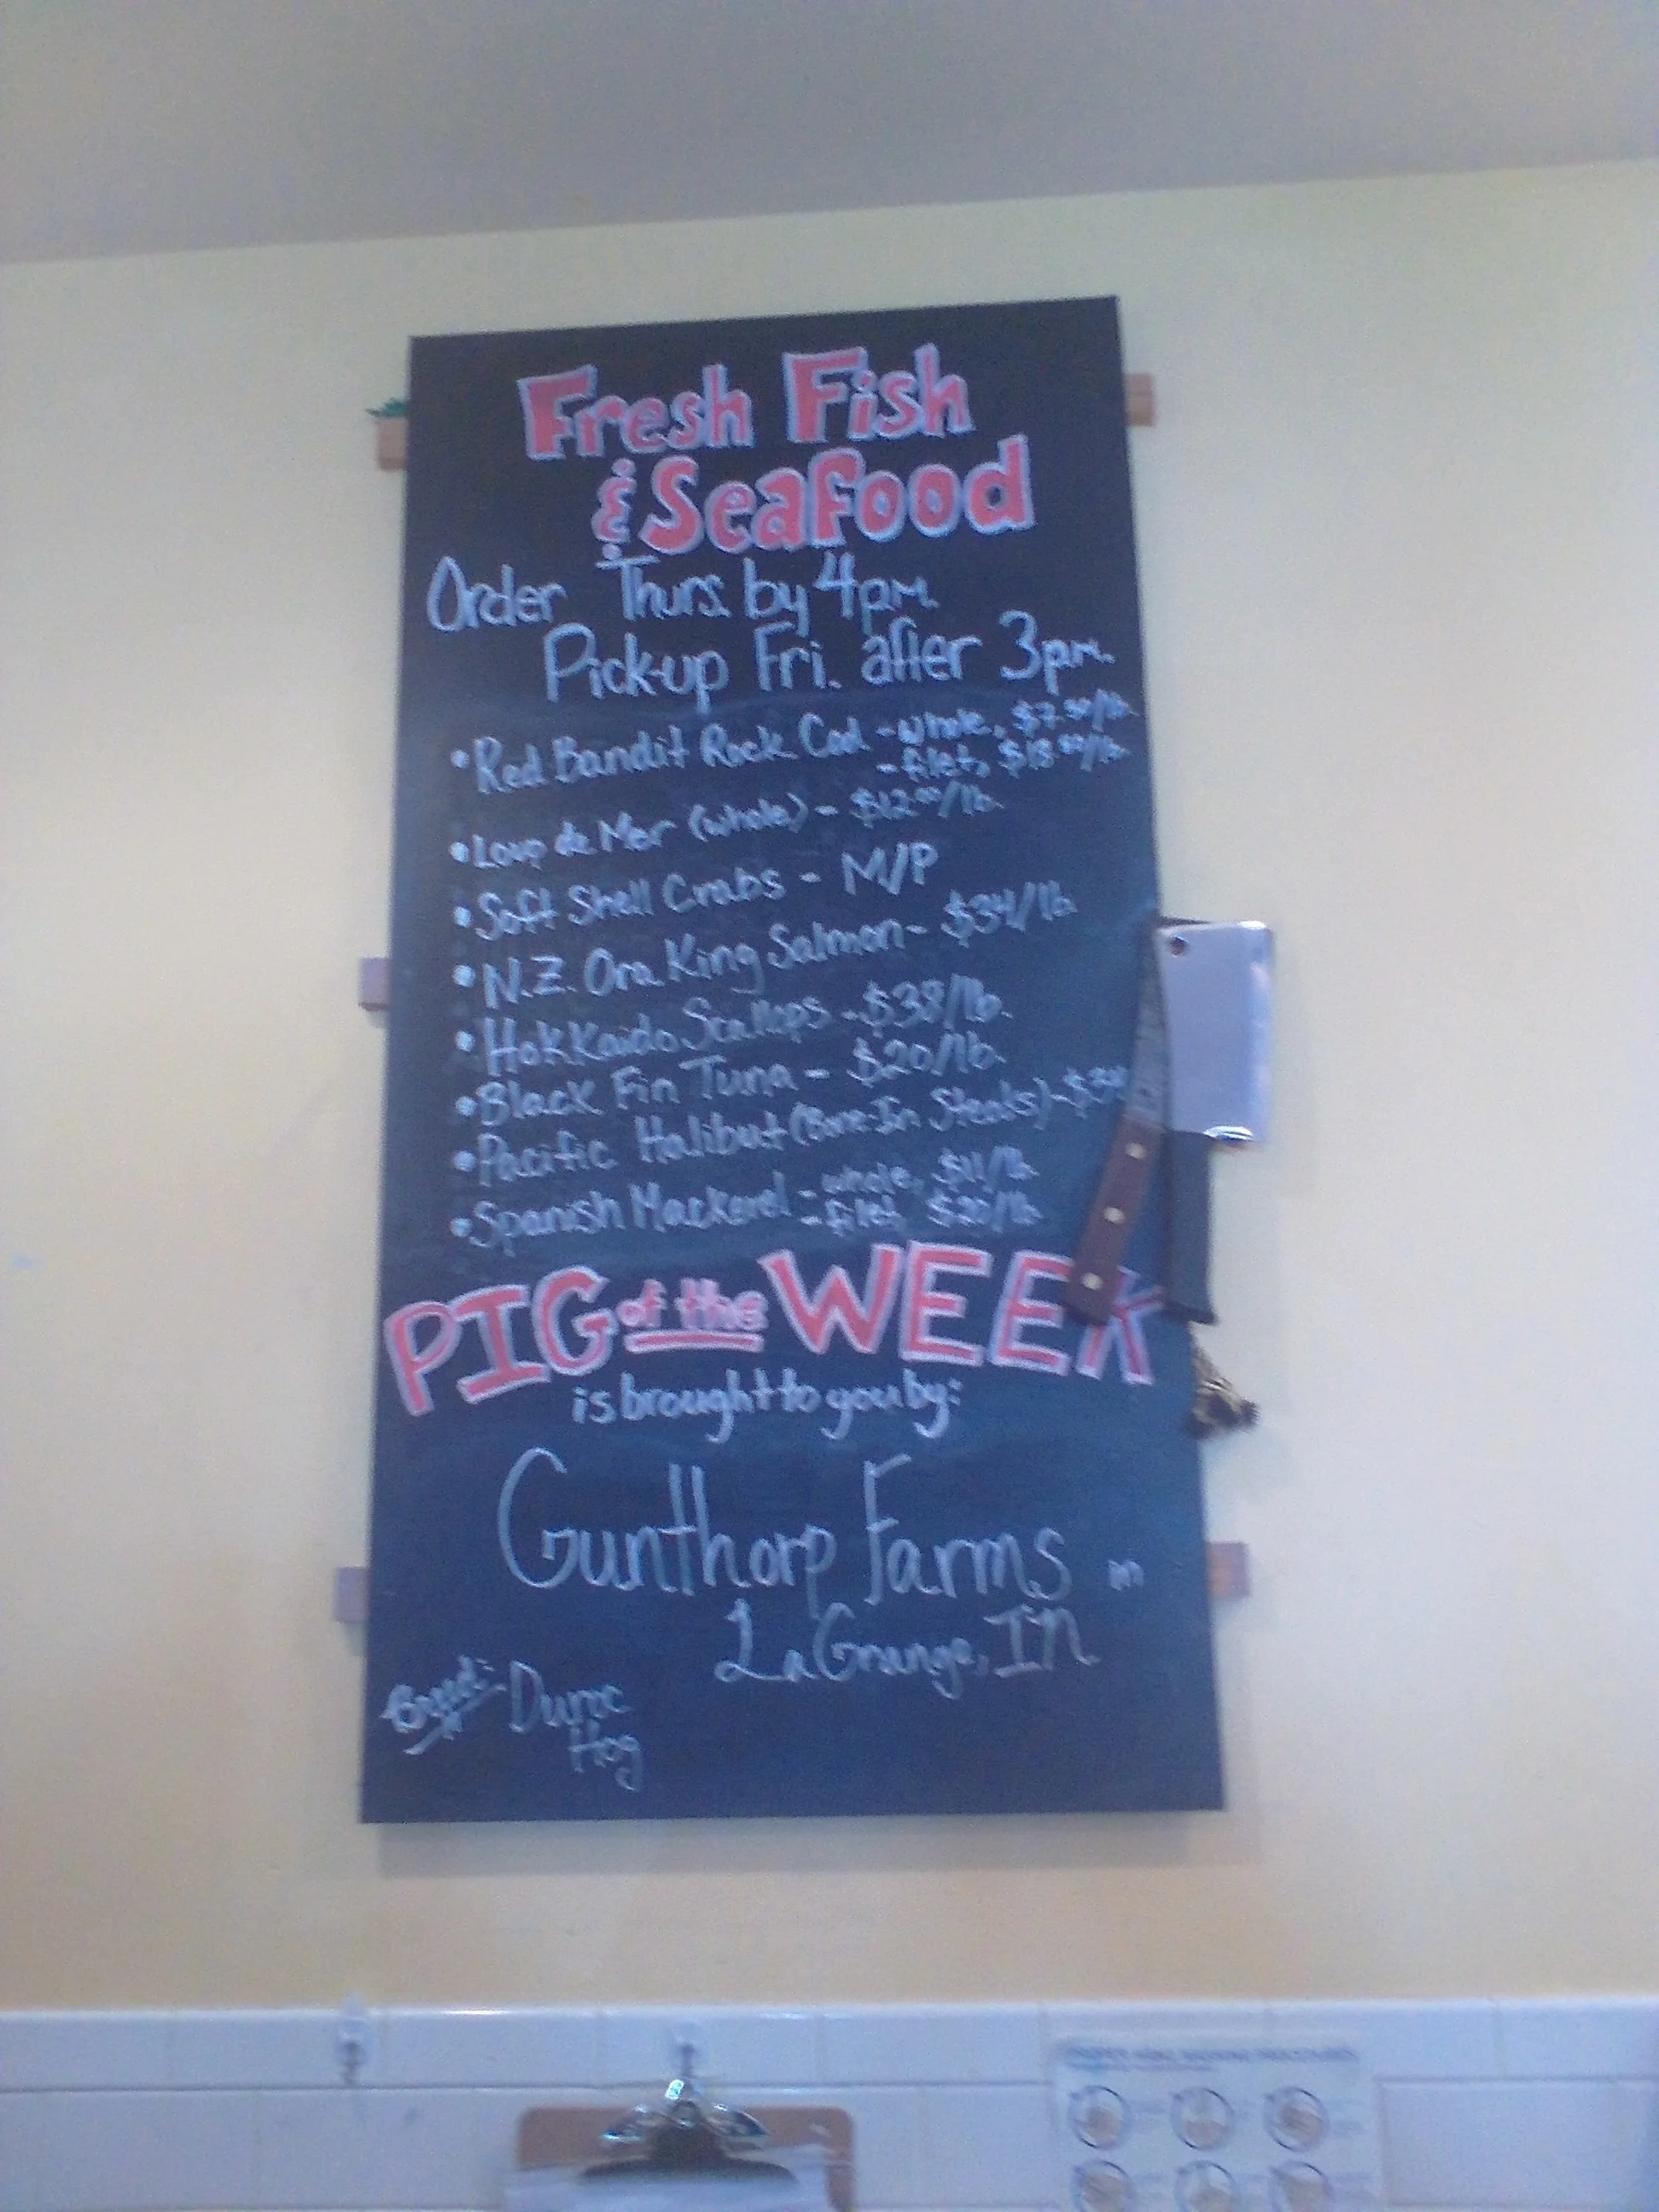 Fresh Fish
& Seafood
Order Thurs. by 4pm.
Pick-up Fri. after 3pm.
• Red Bandit Rock Cod - whole, $7.50/lb.
- filet, $18.00/lb.
• Loup de Mer (whole) - $12.00/lb.
• Soft Shell Crabs - M/P
• N.Z. Ora King Salmon - $34/lb.
• Hokkaido Scallops - $38/lb.
• Black Fin Tuna - $20/lb.
• Pacific Halibut (Bone-In Steaks) -
• Spanish Mackerel - whole, $11/lb.
- filet, $20/lb.
PIG of the WEEK
is brought to you by:
Gunthorp Farms in
LaGrange, IN
Breed: Duroc
Hog